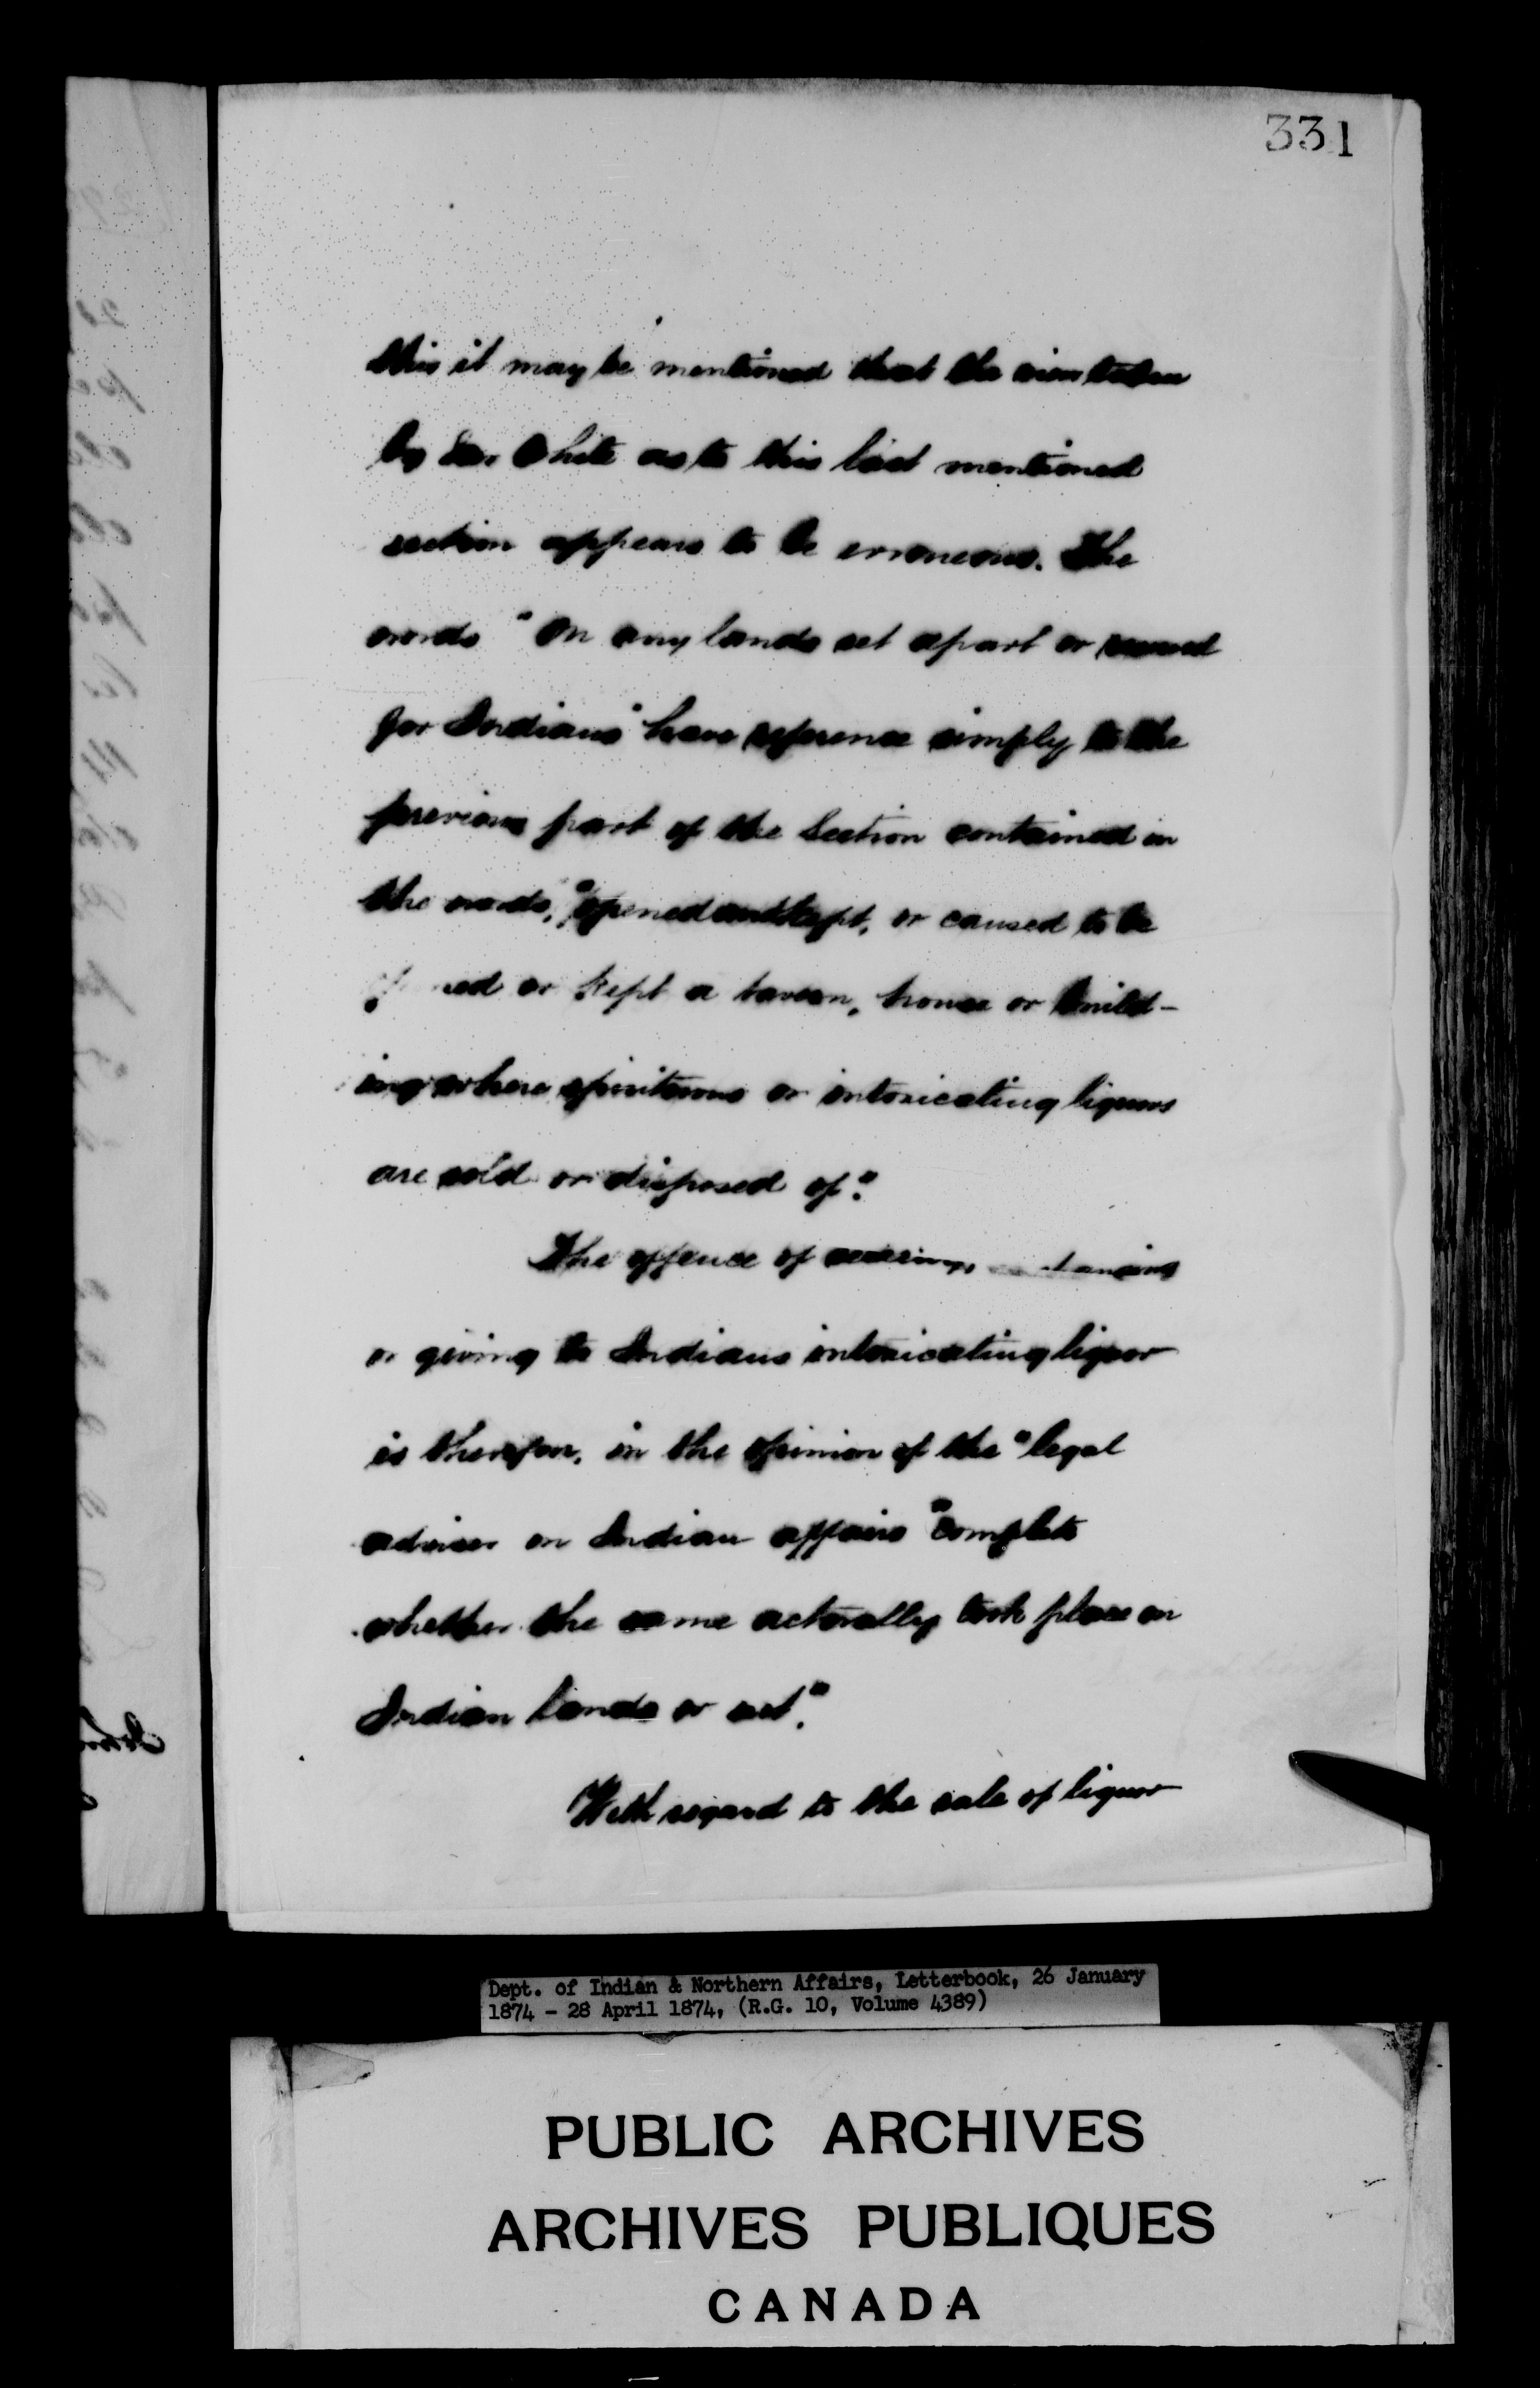 331
this it may be mentioned that the view taken
by White as to this last mentioned
section appears to be erroneous. The
words "On any lands set apart or reserved
for Indians" have reference simply to the
previous part of the Section contained in
the words, "opened and kept, or caused to be
or kept a tavern, house or build-
ing where spirituous or intoxicating liquors
are sold or disposed of".
The offence of
or giving to Indians intoxicating liquor
is therefore, in the opinion of the "legal
adviser on Indian affairs" complete
whether the same actually took place on
Indian lands or not".
With regard to the sale of liquor
Dept. of Indian & Northern Affairs, Letterbook, 26 January
1874 - 28 April 1874, (R.G. 10, Volume 4389)
PUBLIC ARCHIVES
ARCHIVES PUBLIQUES
CANADA